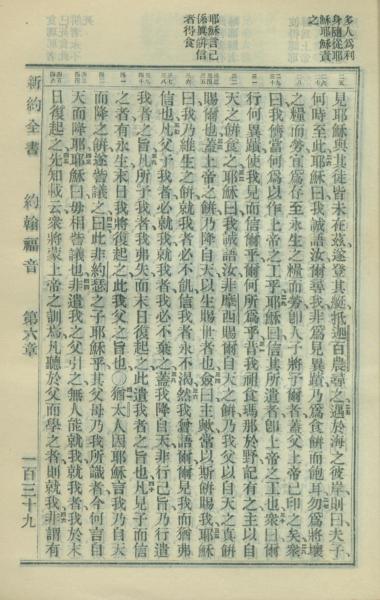 多人為利
身隨從耶
穌耶穌責
之
耶穌言己
係真餅信
者得食
見耶穌與其徒皆未在茲遂登其艇抵迦百農尋之遇於海之彼岸則曰夫子
何時至此耶穌曰我誠語汝爾尋我非為見異蹟乃為食餅而飽耳勿為將壞
之糧而勞宜為存至永生之糧而勞卽人子將予爾者蓋父上帝已印之矣衆
曰我儕當何為以作上帝之工乎耶穌曰信其所遣者卽上帝之工也衆曰爾
行何異蹟使我見而信爾乎爾何所為乎昔我祖食瑪那於野記有之曰以自
天之餅食之耶穌曰我誠語汝非摩西賜爾自天之餅乃我父以自天之真餅
賜爾也蓋上帝之餅乃降自天以生賜世者也僉曰主歟常以斯餅賜我耶穌
曰我乃維生之餅就我者必不飢信我者永不渴然我曾語爾爾見我而猶弗
信也凡父予我者必就我就我者我必不棄之蓋我降自天非行己旨乃行遣
我者之旨也所予我者我弗失而末日復起之此遣我者之旨也凡見子而信
之者有永生末日我將復起之此我父之旨也〇猶太人因耶穌言我乃自天
而降之餅遂訾議之曰此非約瑟之子耶穌乎其父母乃我所識者今何言自
天而降耶耶穌曰毋相訾議也非遣我之父引之無人能就我就我者我於末
日復起之先知載云衆將蒙上帝之訓焉凡聽於父而學之者則就我非謂有
新約全書　約翰福音　第六章　一百三十九